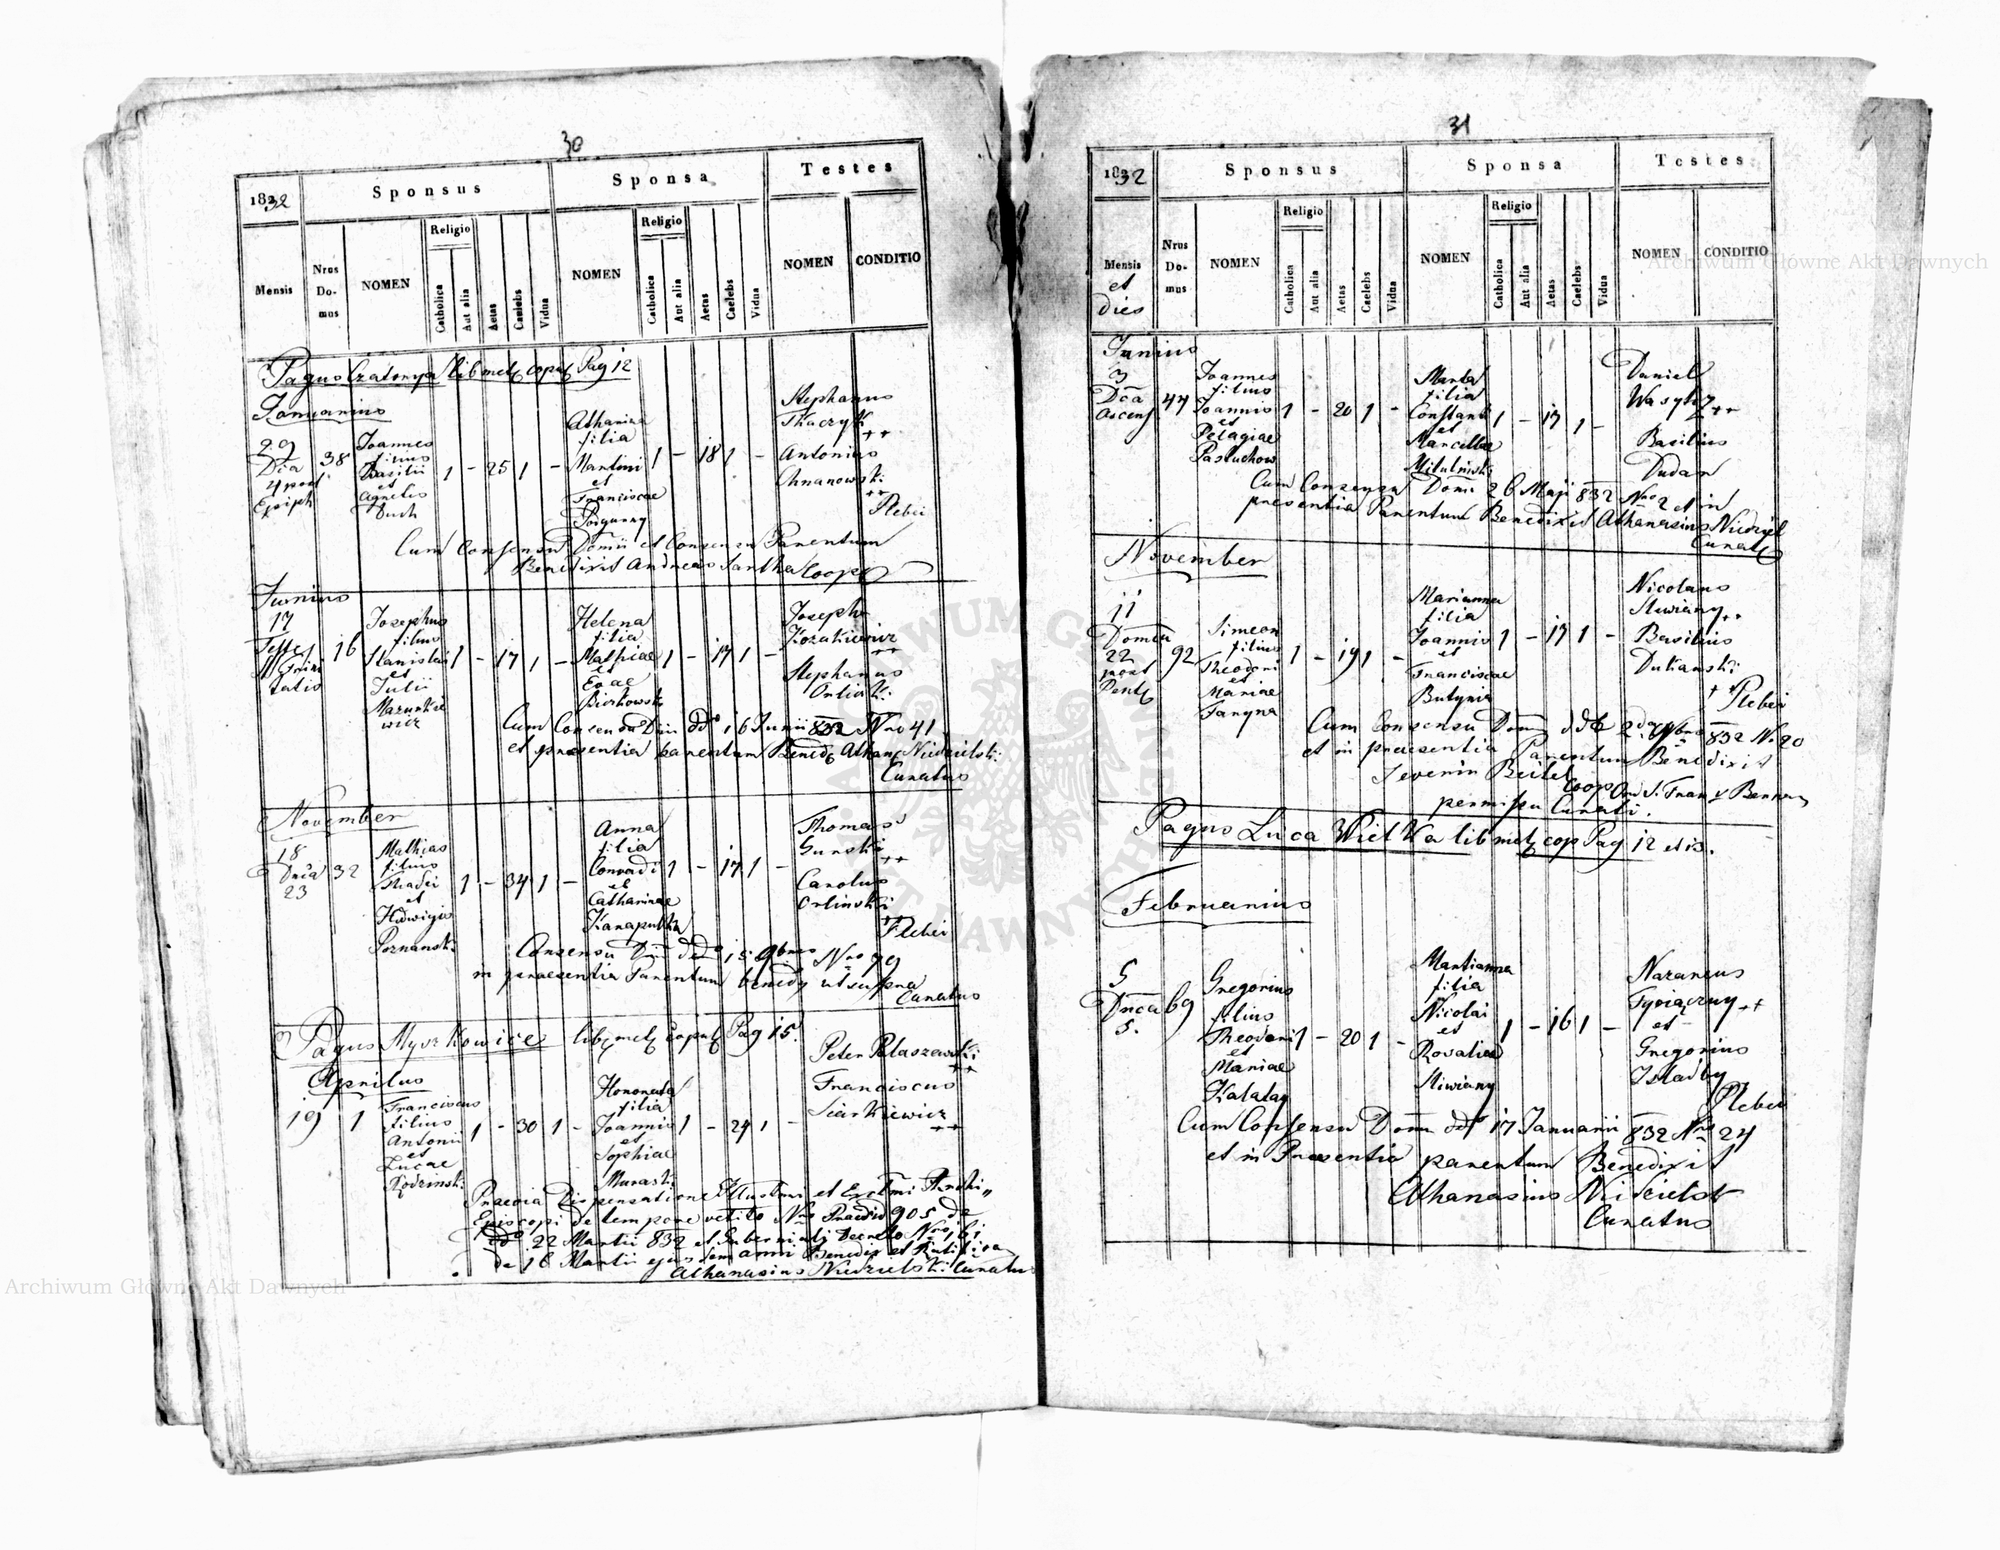 30
1832
Sponsus
Sponsa
Testes
Mensis
Nrus Domus
NOMEN
Religio
Catholica
Aut alia
Aetas
Caelebs
Vidua
NOMEN
Religio
Catholica
Aut alia
Aetas
Caelebs
Vidua
NOMEN
CONDITIO
Pagus Czatorya lib metr copul Pag 12
Januarius
29
Dca
4 post
Epiph
38
Joannes
filius
Basilii
et
Agnetis
Duch
1 - 25 1 -
Athanisia
filia
Martini
et
Franciscae
Podgurny
1 - 18 1 -
Stephanus
Tkaczyk
++
Antonius
Chranowski
++
Plebei
Cum Consensu Domii et Consensu Parentum
Benedixit Andreas Santha Coop
Junius
17
16
Josephus
filius
Stanislai
et
Julii
Mazurkie
wicz
1 - 17 1 -
Helena
filia
Mathiae
et
Evae
Bierkowski
1 - 17 1 -
Joseph
Kozakiewicz
++
Stephanus
Orlinski
Cum Consensu Dnii ddo 16 Junii 832 Nro 41
et praesentia parentum Bened Athan Niedzielski
Curatus
November
18
Dnca
23
32
Mathias
filius
Thadei
et
Hedwigis
Poznanski
1 - 34 1 -
Anna
filia
Conradi
et
Catharinae
Kanapulka
1 - 17 1 -
Thomas
Gurski
++
Carolus
Orlinski
++
Plebei
Consensu Dnii ddo 15 9bris Nro 79
in praesentia Parentum bened ut supra
Curatus
Pagus Myszkowice lib metr copul Pag 15.
Aprilus
19
1
Franciscus
filius
Antonii
et
Lucae
Rodzinski
1 - 30 1 -
Honorata
filia
Joannis
et
Sophiae
Muraski
1 - 24 1 -
Peter Palaszewski
++
Franciscus
Siarkiewicz
++
Praevia Dispensatione Illustrmi et
Episcopi de tempore vetito Nro 905 de
ddo 22 Martii 832 et Guberniali Decreto Nro
de 16 Martii ejusdem anni Benedix et
Athanasius Niedzielski Curatus
31
1832
Sponsus
Sponsa
Testes
Mensis
et
dies
Nrus Domus
NOMEN
Religio
Catholica
Aut alia
Aetas
Caelebs
Vidua
NOMEN
Religio
Catholica
Aut alia
Aetas
Caelebs
Vidua
NOMEN
CONDITIO
Junius
3
Dca
Ascens
44
Joannes
filius
Joannis
et
Pelagiae
Pastuchow
1 - 20 1 -
Marta
filia
Constanti
et
Marcellae
Mikulinski
1 - 17 1 -
Daniel
Wasylis
++
Basilius
Dudar
Cum Consensu Domi 26 Maji 832 Nro 2 et in
presentia Parentum Benedixit Athanasius Niedziel
Curat
November
11
Domca
22
post
Pent
92
Simeon
filius
Theodori
et
Mariae
Faryna
1 - 19 1 -
Marianna
filia
Joannis
et
Franciscae
Butynia
1 - 17 1 -
Nicolaus
Siwiany
++
Basilius
Dutianski
++
Plebei
Cum Consensu Domi ddo 2 9bris 832 N 20
et in praesentia Parentum Benedixit
Severin Beitel
Coop Ord S. Fran Bernar
permissu Curati.
Pagus Luca Wielka lib metr cop Pag 12 et 13.
Februarius
5
Dnca
5.
69
Gregorius
filius
Theodori
et
Mariae
Kalatay
1 - 20 1 -
Marianna
filia
Nicolai
et
Rosaliae
Siwiany
1 - 16 1 -
Nazareus
Tysiaczny
++
et
Gregorius
Plebei
Cum Consensu Domi ddo 17 Januarii 832 Nro 24
et in Praesentia parentum Benedixit
Athanasius Nidzielsk
Curatus
Archiwum Główne Akt Dawnych
Archiwum Główne Akt Dawnych
ARCHIWUM GŁÓWNE AKT DAWNYCH